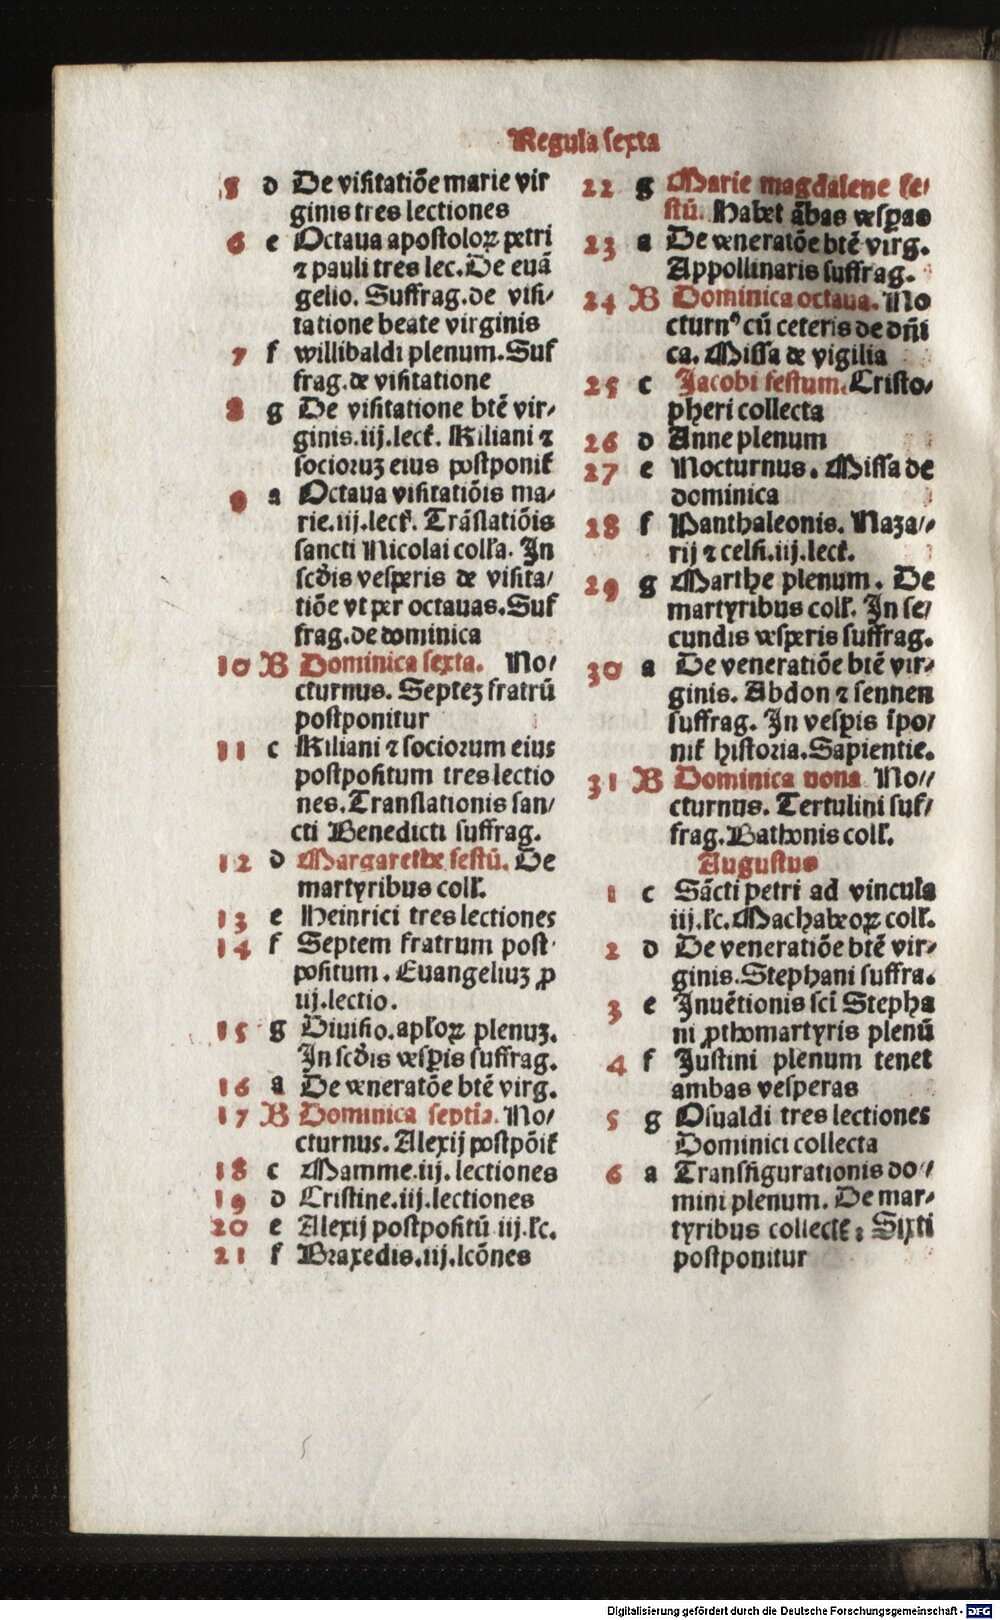 Regula sexta
5 d De visitatiõe marie vir
ginis tres lectiones
6 e Octaua apostoloꝝ petri
⁊ pauli tres lec. De euã
gelio. Suffrag. de visi/
tatione beate virginis
7 f willibaldi plenum. Suf
frag. de visitatione
8 g De visitatione btẽ vir/
ginis .iij. lect̃. Kiliani ⁊
socioruʒ eius postponit̃
9 a Octaua visitatiõis ma/
rie .iij. lect̃. Trãslatiõis
sancti Nicolai coll̃a. In
scd̃is vesperis de visita/
tiõe vt per octauas. Suf
frag. de dominica
10 B Dominica sexta. No/
cturnus. Septeʒ fratrũ
postponitur
11 c Kiliani ⁊ sociorum eius
postpositum tres lectio
nes. Translationis san/
cti Benedicti suffrag.
12 d Margarethe festũ. De
martyribus coll̃.
13 e Heinrici tres lectiones
14 f Septem fratrum post
positum. Euangeliuʒ ꝓ
iij. lectio.
15 g Diuisio. apl̃oꝝ plenuʒ.
In scd̃is vesꝑis suffrag.
16 a De veneratõe btẽ virg.
17 B Dominica septĩa. No/
cturnus. Alexij postpõit̃
18 c Mamme .iij. lectiones
19 d Cristine .iij. lectiones
20 e Alexij postpositũ iij. l̃c.
21 f Braxedis .iij. lcõnes
22 g Marie magdalene fe/
stũ. Habet ãbas vesꝑas
23 a De veneratõe btẽ virg.
Appollinaris suffrag.
24 B Dominica octaua. No
cturnꝰ cũ ceteris de dñi
ca. Missa de vigilia
25 c Jacobi festum. Cristo/
pheri collecta
26 d Anne plenum
27 e Nocturnus. Missa de
dominica
28 f Panthaleonis. Naza/
rij ⁊ celsi .iij. lect̃.
29 g Marthe plenum. De
martyribus coll̃. In se/
cundis vesperis suffrag.
30 a De veneratiõe btẽ vir/
ginis. Abdon ⁊ sennen
suffrag. In vesꝑis ĩpo/
nit̃ historia. Sapientie.
31 B Dominica nona No/
cturnus. Tertulini suf/
frag. Bathonis coll̃.
Augustus
1 c Sãcti petri ad vincula
iij. l̃c. Machabeoꝝ coll̃.
2 d De veneratiõe btẽ vir/
ginis. Stephani suffra.
3 e Inuẽtionis sci Stepha
ni ꝓthomartyris plenũ
4 f Justini plenum tenet
ambas vesperas
5 g Osualdi tres lectiones
Dominici collecta
6 a Transfigurationis do/
mini plenum. De mar/
tyribus collect̃: Sixti
postponitur
Digitalisierung gefördert durch die Deutsche Forschungsgemeinschaft - DFG